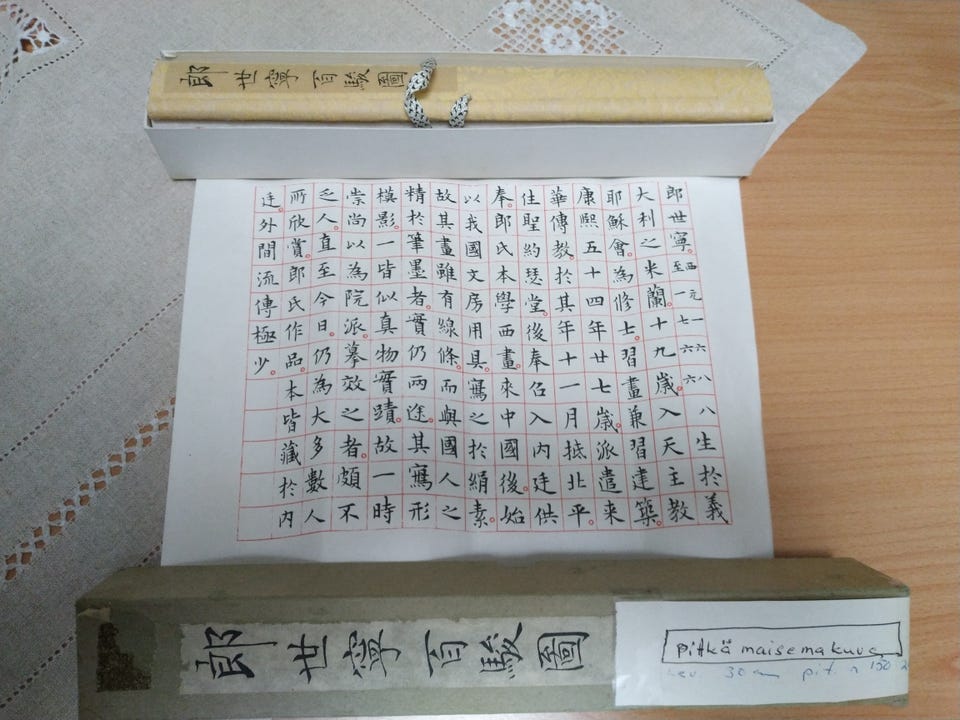 郎世寧百駿圖
郎世寧。西元一六八八至一七六六生於義
大利之米蘭。十九歲。入天主教
耶穌會。為修士。習畫兼習建築。
康熙五十四年廿七歲。派遣來
華傳教。於其年十一月抵北平。
住聖約瑟堂。後奉召入內廷供
奉。郎氏本學西畫。來中國後。始
以我國文房用具。寫之於絹素。
故其畫雖有線條。而與國人之
精於筆墨者。實仍兩途。其寫形
模影。一皆似真物實蹟。故一時
崇尚以為院派。摹效之者。頗不
乏人。直至今日。仍為大多數人
所欣賞。郎氏作品。本皆藏於內
廷。外間流傳極少。
郎世寧百駿圖
pitkä maisemakuva
30 pit.